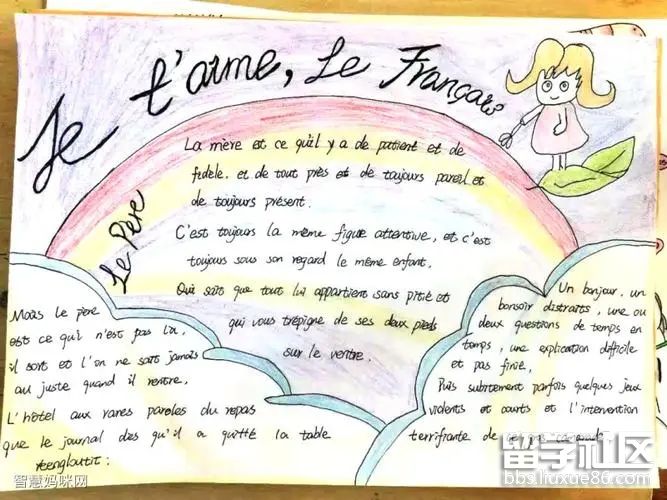 Je t'aime, Le Français
La mère est ce qu'il y a de patient et de
fidèle, et de tout près et de toujours pareil et
de toujours présent.
C'est toujours la même figure attentive, et c'est
toujours sous son regard le même enfant,
Qui sait que tout lui appartient sans pitié et
qui vous trépigne de ses deux pieds
sur le ventre.
Le Père
Mais le père
est ce qui n'est pas là,
il sort et l'on ne sait jamais
au juste quand il rentre,
L'hôtel aux rares paroles du repas
que le journal dès qu'il a quitté la table
réengloutit:
Un bonjour, un
bonsoir distraits, une ou
deux questions de temps en
temps, une explication difficile
et pas finie,
Puis subitement parfois quelques jeux
violents et courts et l'intervention
terrifiante de
智慧妈咪网
留学社区
bbs.liuxue86.com